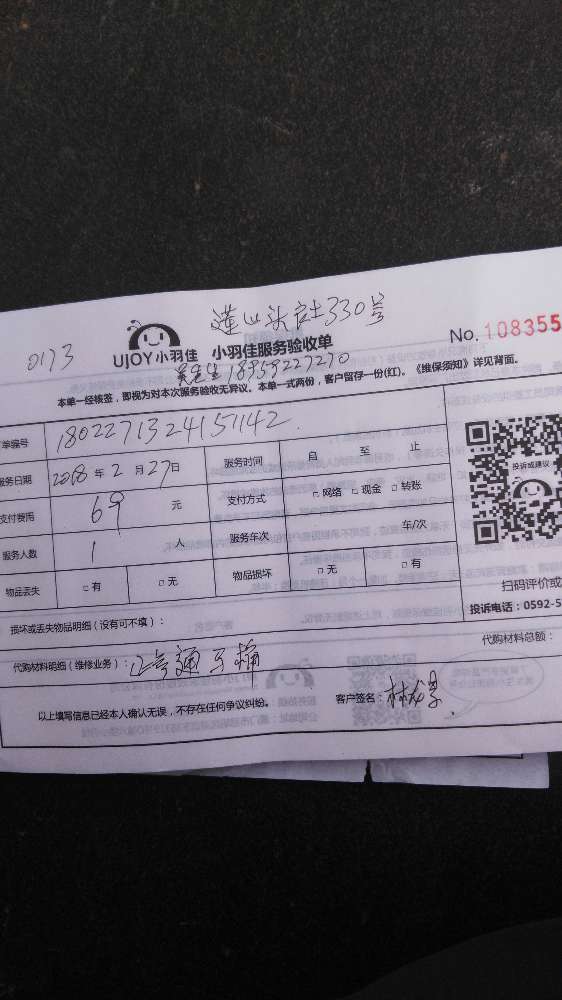 莲山头社330号
0173
UJOY小羽佳 小羽佳服务验收单 No. 108355
吴先生18959227270
本单一经核签，即视为对本次服务验收无异议。本单一式两份，客户留存一份(红)。《维保须知》详见背面。
单编号 1802271324151142
服务日期 2018 年 2 月 27 日 服务时间 自 至 止
支付费用 69 元 支付方式 □ 网络 □ 现金 □ 转账
服务人数 1 人 服务车次 车/次
物品丢失 □ 有 □ 无 物品损坏 □ 无 □ 有
投诉或建议
扫码评价或
投诉电话：0592-5
损坏或丢失物品明细（没有可不填）：
代购材料总额：
代购材料明细（维修业务）： 通马桶
以上填写信息已经本人确认无误，不存在任何争议纠纷。 客户签名：